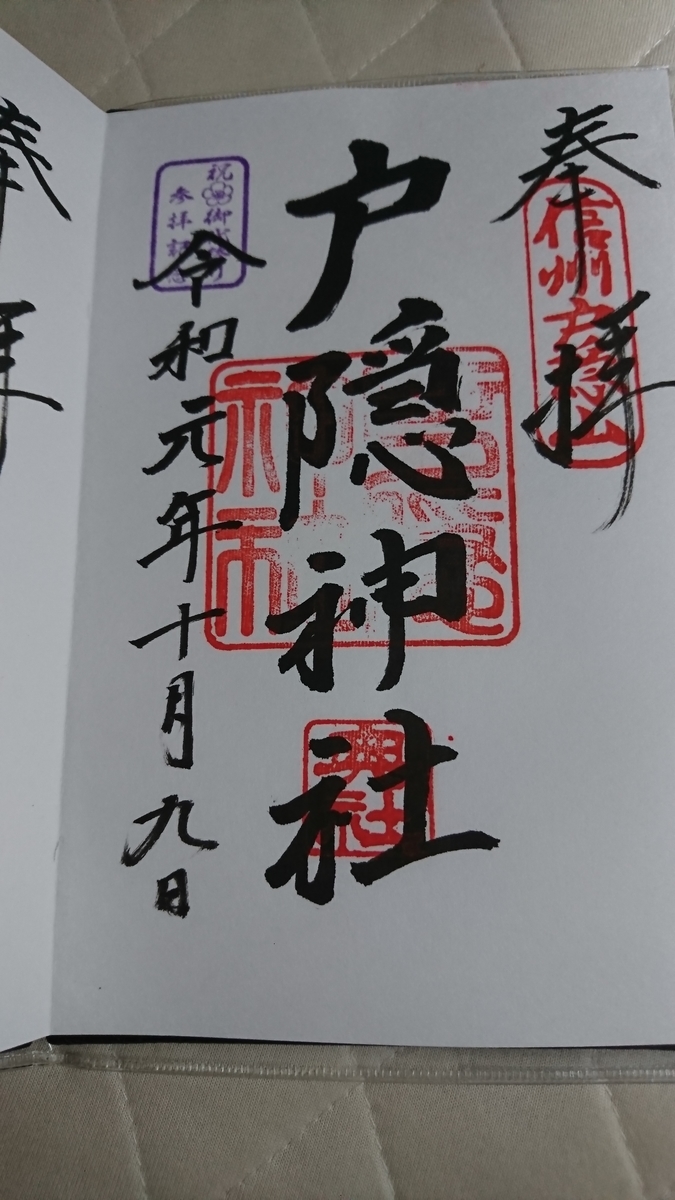 奉拝
信州戸隠山
戸隠神社
令和元年十月九日
祝 御代替り
参拝記念
奉拝